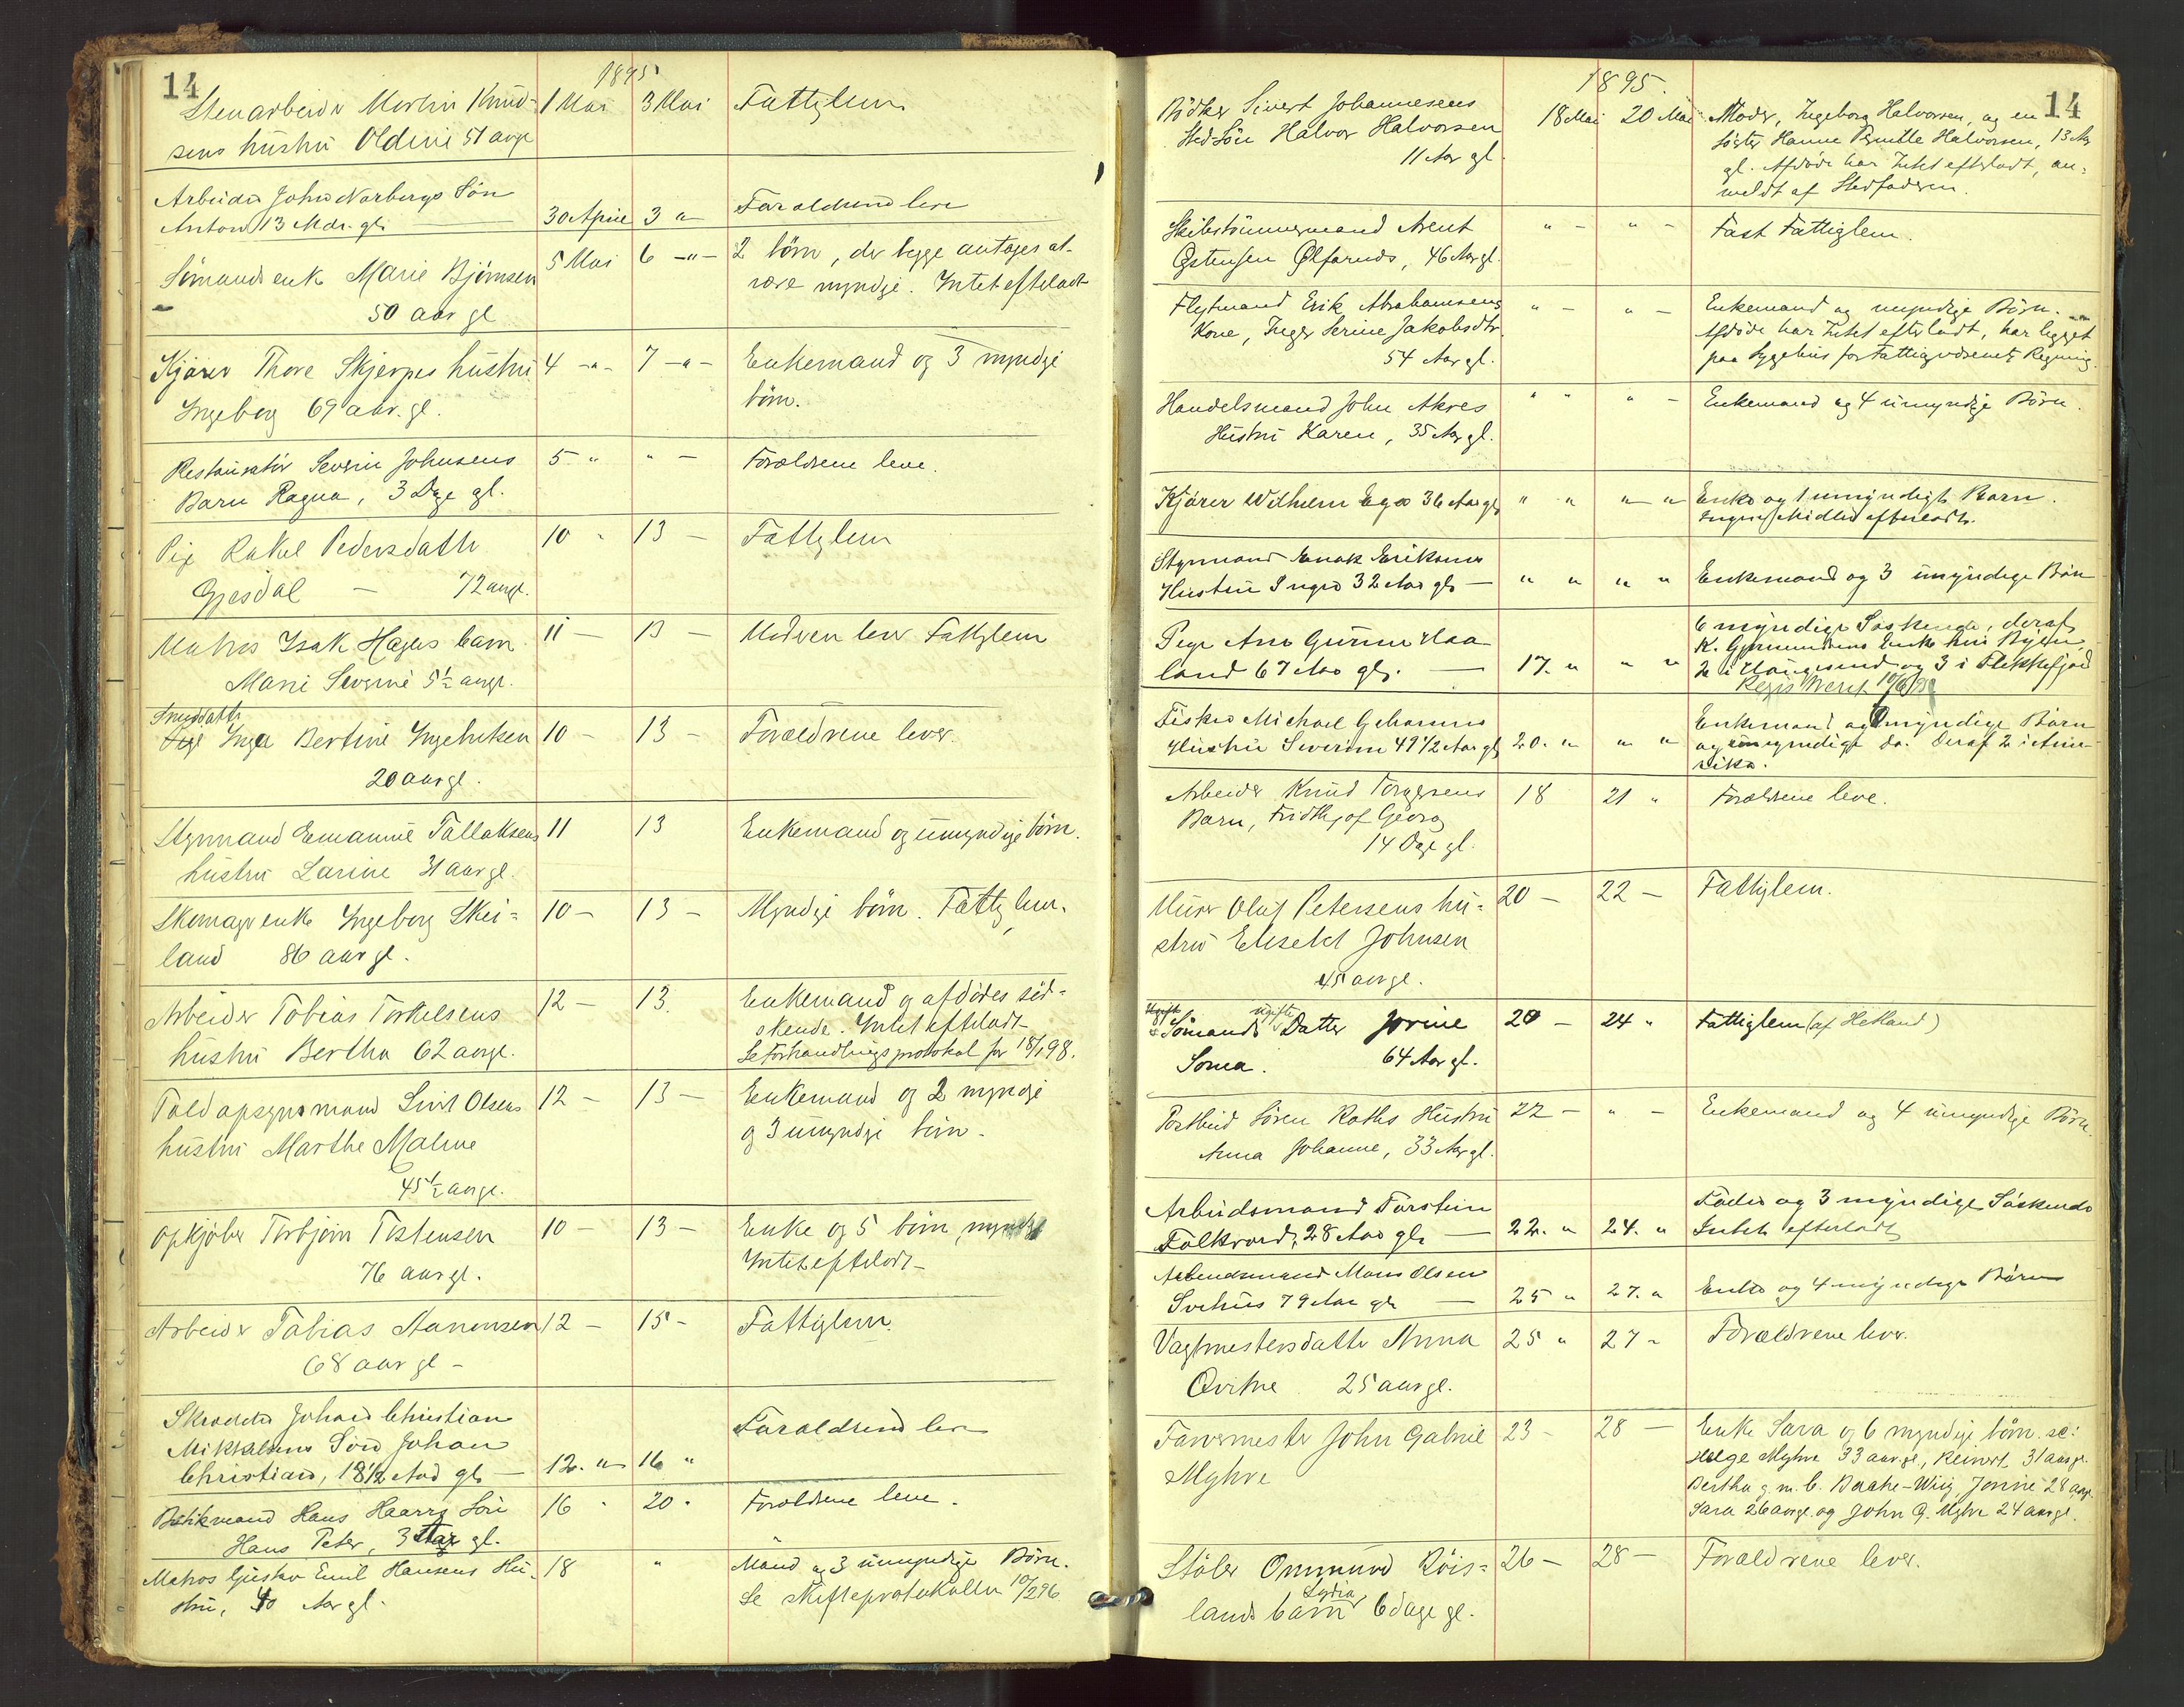 14
1895
Stenarbeider Martin Knud- 1 Mai 3 Mai Fattiglem
sens hustru Oldine 51 aar gl
Arbeider John Norbergs Søn
Anton 13 Mdr. gl. — 30 April 3 " Forældrene leve
Sømands enk Marie Bjørnsen 5 Mai 6 -"- 2 børn, der begge antages at
50 aar gl være myndige. Intet efterladt
Kjører Thore Skjerpes hustru 4 -"- 7 -"- Enkemand og 3 myndige
Ingeborg 69 aar. gl. børn.
Restauratør Severin Johnsens 5 " " — Forældrene leve.
Barn Ragna, 3 Dage gl.
Pige Rakel Pedersdatter 10 - 13 — Fattiglem
Gjesdal — 72 aar gl.
Matros Isak Hages barn 11 — 13 — Moderen lever Fattiglem
Marie Severine 5½ aar gl.
Snedkdattr
Inga Bertine Ingebretsen 10 — 13 — Forældrene lever.
20 aar gl.
Styrmand Emanuel Tallaksens 11 13 Enkemand og umyndige børn.
hustru Larine 31 aar gl.
Skomagerenke Ingeborg Skei= 10 — 13 — Myndige børn. Fattiglem.
land 86 aar gl.
Arbeider Tobias Torkelsens 12 — 13. Enkemand og afdødes sød=
hustru Bertha 62 aar gl. skende. Intet efterladt
Se Forhandlingsprotokol for 18/1 98.
Toldopsynsmand Sivert Olsens 12 — 13 — Enkemand og 2 myndige
hustru Marthe Malene og 3 umyndige børn.
45½ aar gl.
Opkjøber Torbjørn Tostensen 10 — 13 — Enke og 5 børn myndige
76 aar gl. Intet efterladt
Arbeider Tobias Aanensen 12 — 15 - Fattiglem.
68 aar gl —
Skrædder Johan Christian
Mikkalsens Søn Johan Forældrene leve
Christian, 18 1/2 Aar gl — 12. " 16 "
Betikmand Hans Haarrs Søn 16 " 20 " Forældrene leve.
Hans Peter, 3 Aar gl.
Matros Gustav Emil Hansens Hu- 18 " Mand og 3 umyndige Børn.
stru, 40 Aar gl. Se Skifteprotokollen 10/2 96.
14
1895.
Bødker Sivert Johannesens 18 Mai 20 Mai Moder, Ingeborg Halvorsen, og en
Stedsøn Halvor Halvorsen søster Hanne Pernille Halvorsen, 13 Aar
11 Aar gl. gl. Afdøde har Intet efterladt, an-
meldt af Stedfaderen.
Skibstømmermand Arent " — " — Fast Fattiglem.
Østensen Ølfarnæs, 46 Aar gl.
Flytmand Erik Abrahamsens " — " — Enkemand og myndige Børn.
Kone, Inger Serine Jakobsdtr. Afdøde har Intet efterladt, har ligget
54 Aar gl. paa Sygehus for Fattigvæsenets Regning.
Handelsmand John Akres " " " — Enkemand og 4 umyndige Børn.
Hustru Karen, 35 Aar gl.
Kjører Wilhelm Ege 36 Aar gl " " " " Enke og 1 umyndigt Barn.
Ingen Midler efterladt.
Styrmand Enok Eriksens
Hustru Inger 32 Aar gl — " " " " Enkemand og 3 umyndige Børn
Pige Ane Gurine Haa- 6 myndige Søskende, deraf
land 67 Aar gl. — 17. " " " K. Gjermundsens Enke her i Byen,
2 i Haugesund og 3 i Flekkefjord
Fisker Michael Gehannes Enkemand og myndige Børn
Hustru Severine 49 1/2 Aar gl 20. " " " og umyndigt do. Deraf 2 i Ame-
rika.
Arbeider Knud Torgersens 18 21 " Forældrene leve.
Barn, Fridthjof Georg
14 Dage gl.
Murer Oluf Petersens hu- 20 — 22 — Fattiglem.
stru Elisebet Johnsen
45 aar gl.
ugift
Sømands Datter Jorine 20 — 24 " Fattiglem (af Hetland)
Soma. 64 Aar gl.
Postbud Søren Roths Hustru 22 — " — Enkemand og 4 umyndige Børn.
Anna Johanne, 33 Aar gl.
Arbeidsmand Torstein Fader og 3 myndige Søskende
Folkvord, 28 Aar gl — 22. " 24. " Intet efterladt
Arbeidsmand Mons Olsen
Svihus 79 Aar gl — 25 " 27. " Enke og 4 myndige Børn
Vagtmestersdatter Anna 25 " 27 " Forældrene lever.
Qvitne 25 aar gl.
Farvermester John Gabriel 23 — 28 — Enke Sara og 6 myndige børn. sc:
Myhre Helge Myhre 33 aar gl, Reinert 31 aar gl.
Bertha g. m. C. Baahe-Wiig, Jonine 28 aar gl.
Sara 26 aar gl. og John G. Myhre 24 aar gl.
Støler Ommund Røis= 26 — 28 — Forældrene lever.
Lydia
lands barn 6 dage gl.